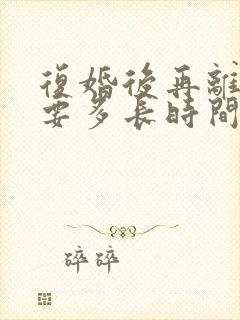 復婚後再離
要多長時間
碎碎